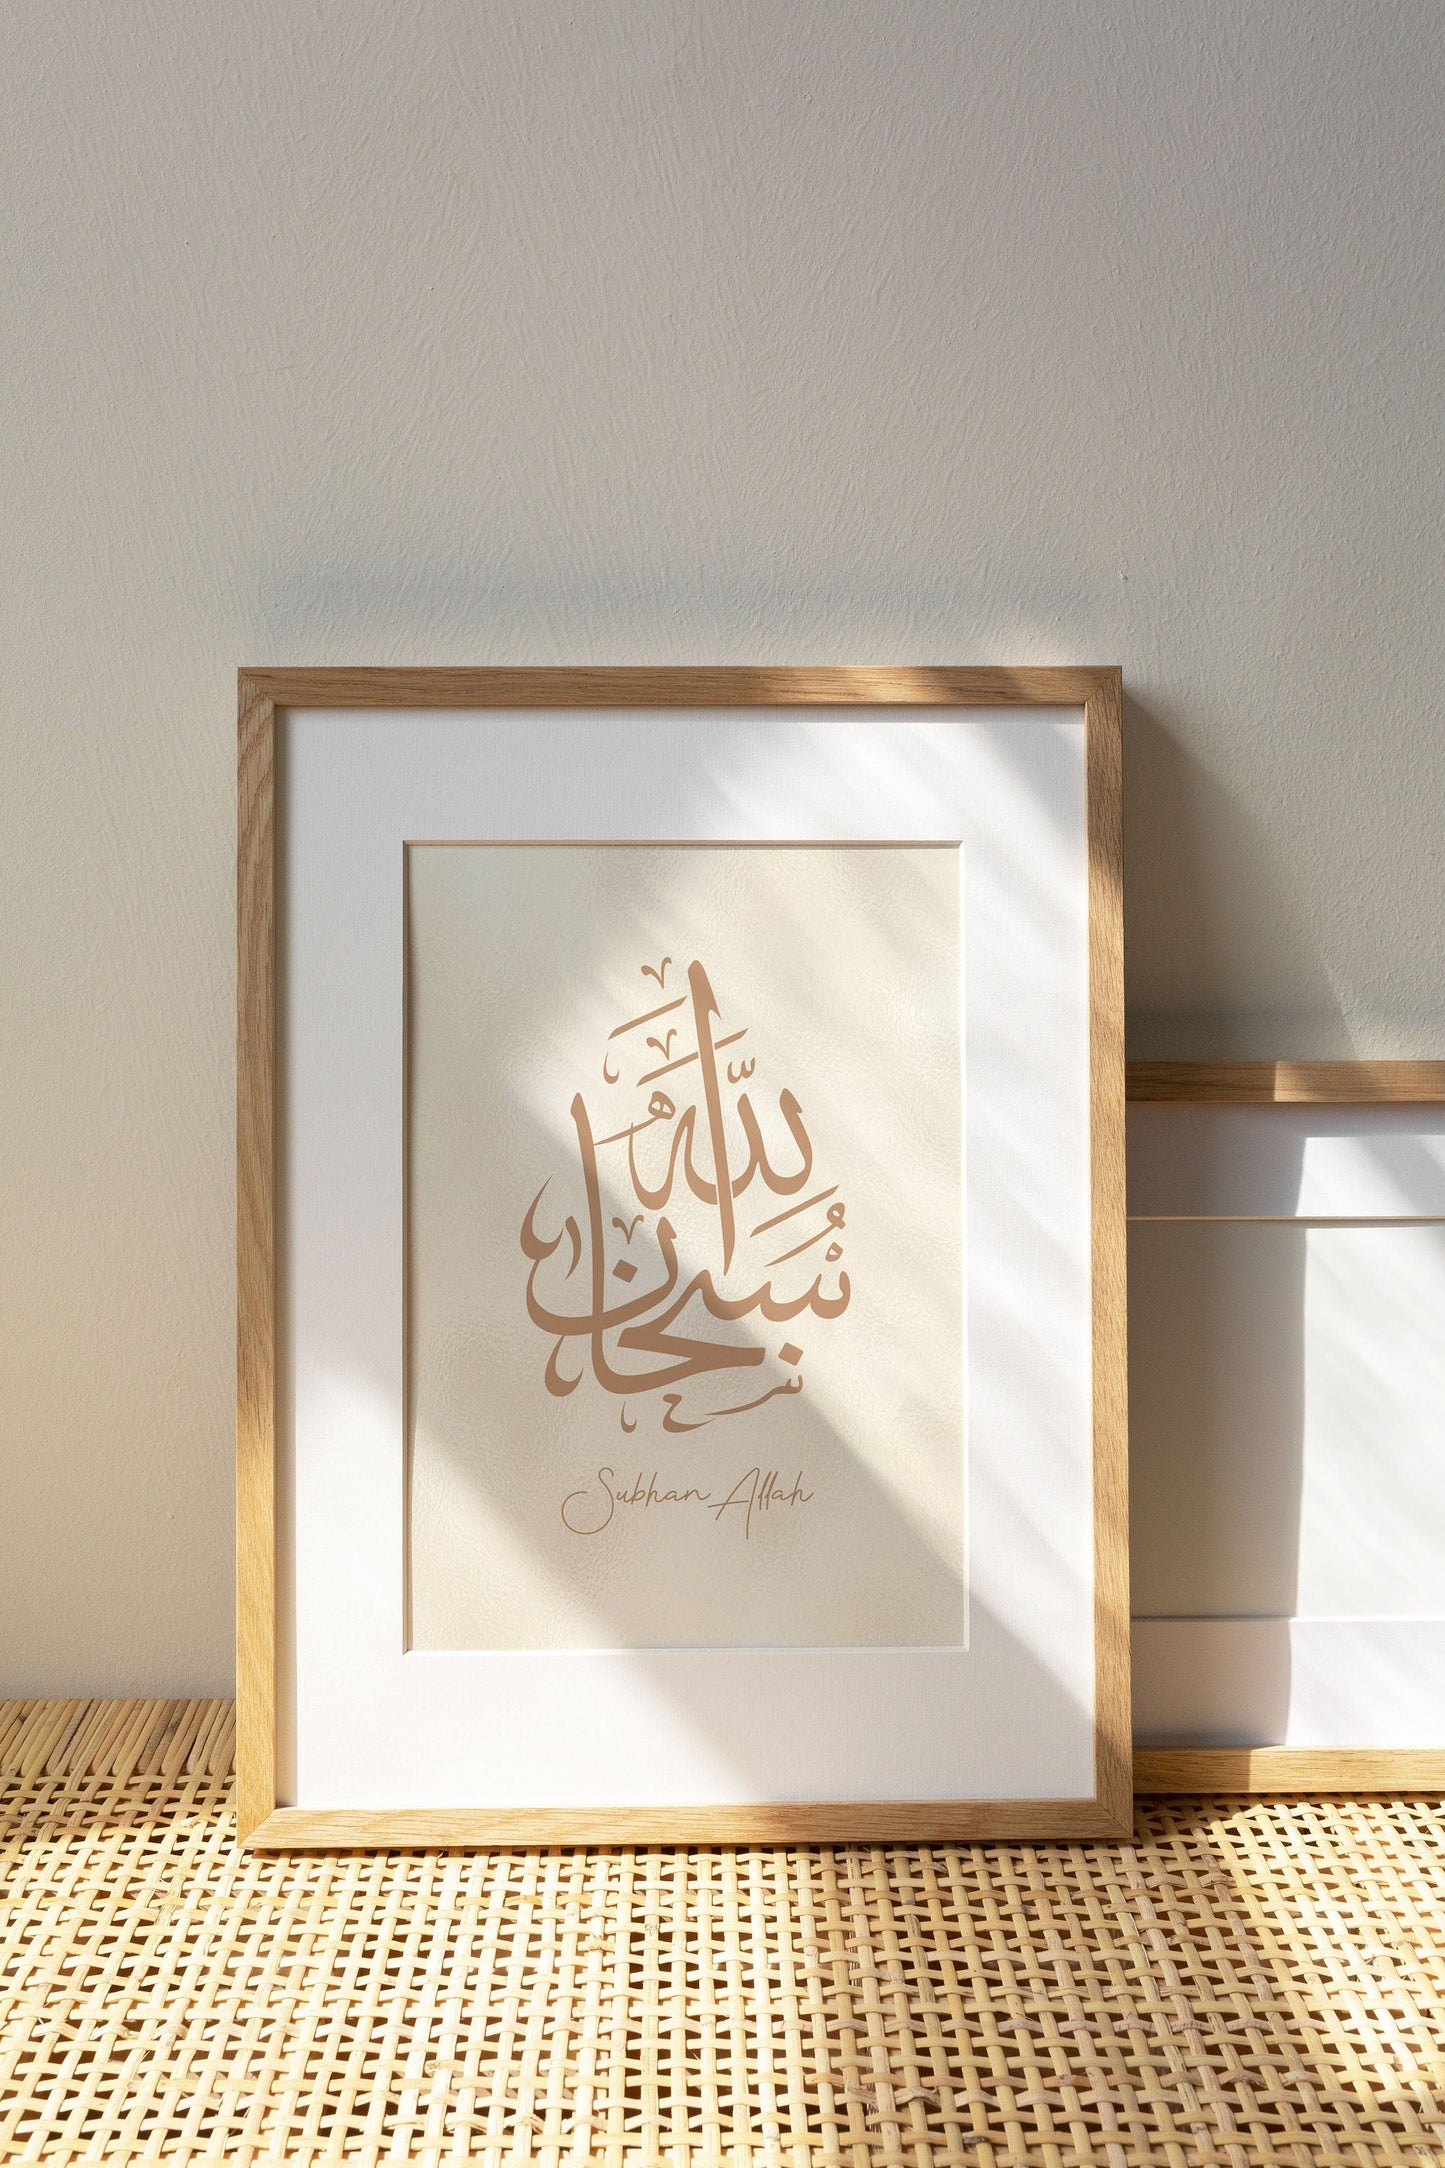 سُبْحَانَ اللَّهِ
Subhan Allah